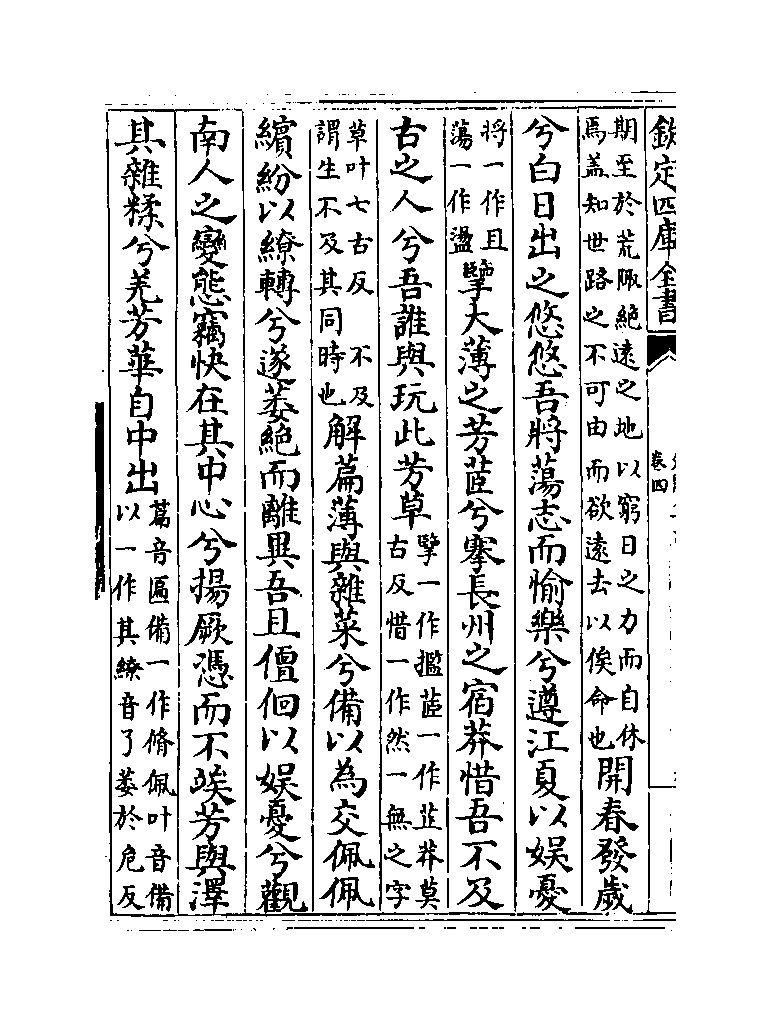 欽定四庫全書
卷四
期至於荒陬絕遠之地以窮日之力而自休
焉盖知世路之不可由而欲遠去以俟命也
開春發歲
兮白日出之悠悠吾將蕩志而愉樂兮遵江夏以娛憂
將一作且
蕩一作盪
擥大薄之芳茝兮搴長州之宿莽惜吾不及
古之人兮吾誰與玩此芳草
擥一作㩜茝一作芷莽莫
古反惜一作然一無之字
草叶七古反 不及
謂生不及其同時也
解萹薄與雜菜兮備以為交佩佩
繽紛以繚轉兮遂萎絕而離異吾且儃佪以娛憂兮觀
南人之變態竊快在其中心兮揚厥憑而不竢芳與澤
其雜糅兮羌芳華自中出
萹音匾備一作脩佩叶音備
以一作其繚音了萎於危反